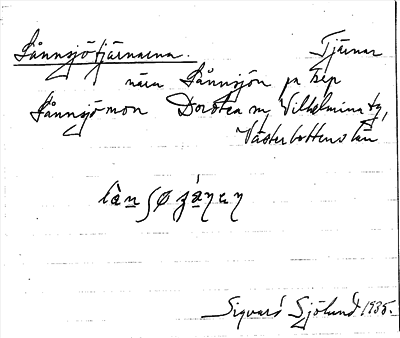 Lånnsjötjärnarna. Tjärnar
nära Lånnsjön på
Lånnsjömon Dorotea sn, Vilhelmina tg,
Västerbottens län
Sigvard Sjölund 1935.